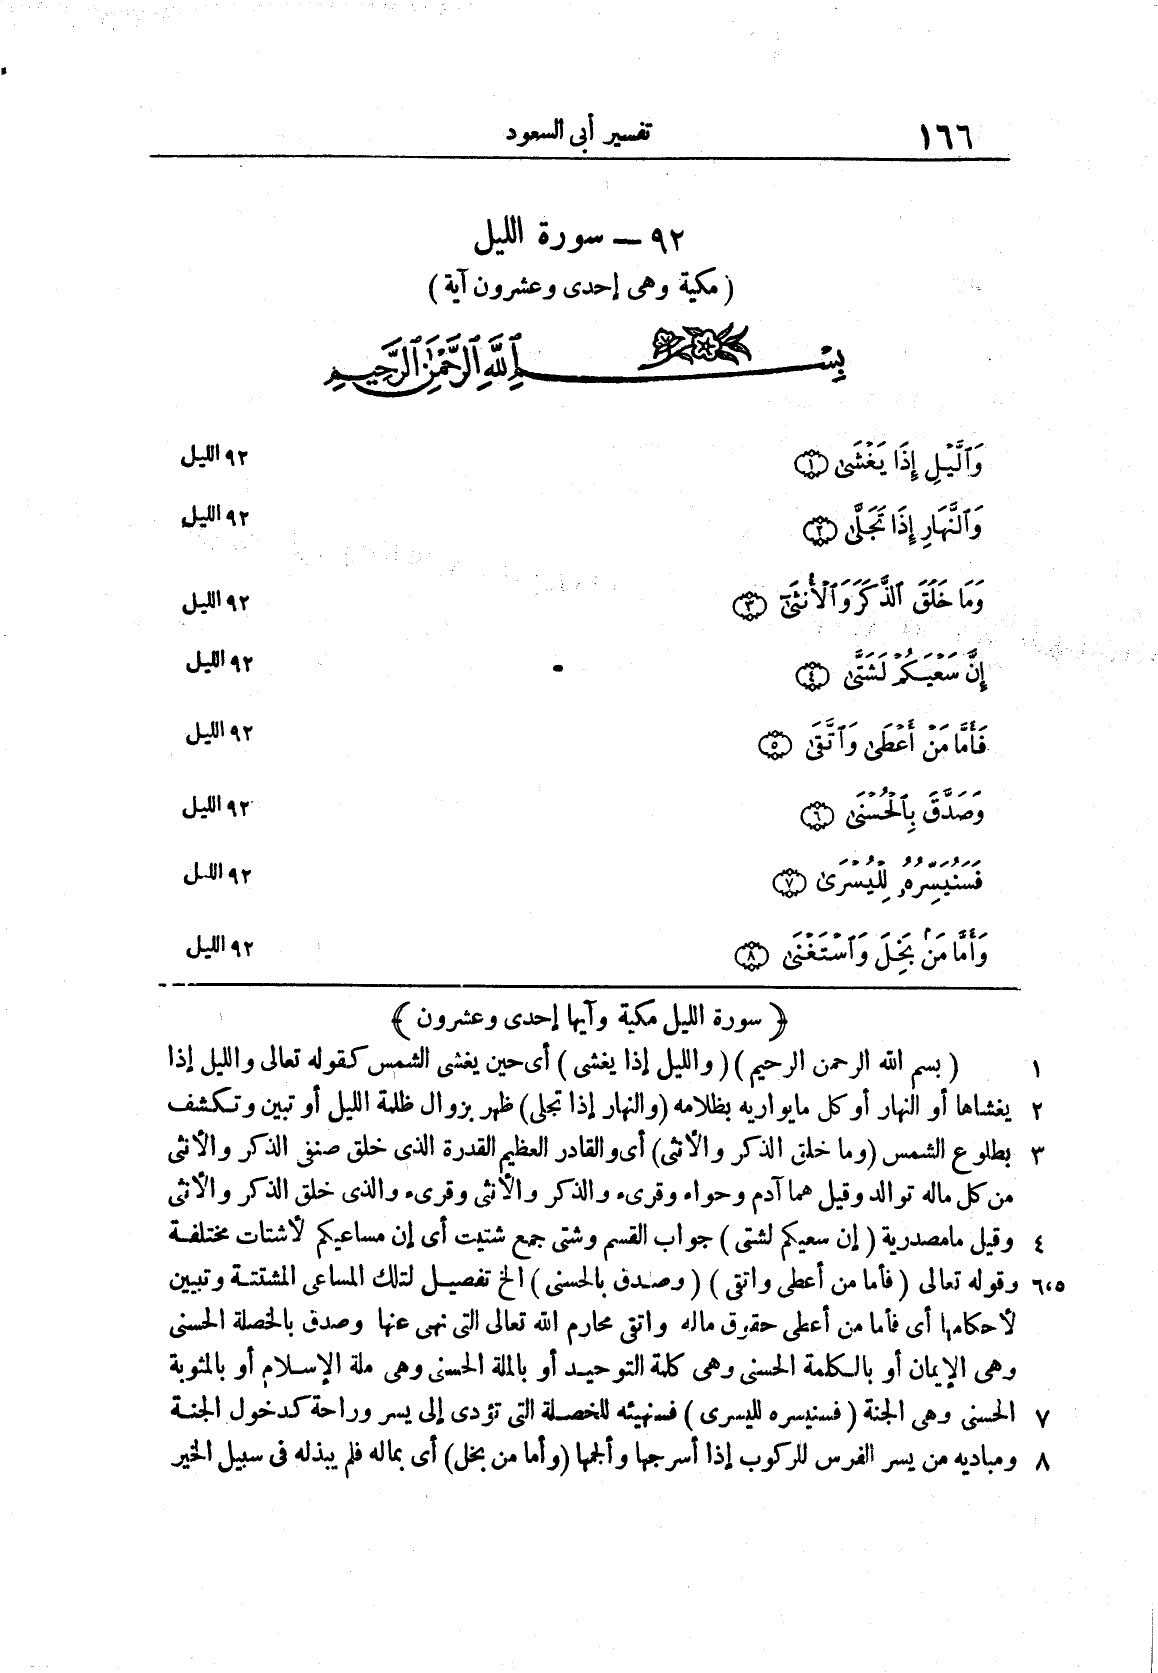 ١٦٦ تفسير أبى السعود
٩٢ — سورة الليل
( مكية وهى إحدى وعشرون آية )
بِسْمِ ٱللَّهِ ٱلرَّحْمَٰنِ ٱلرَّحِيمِ
وَٱلَّيْلِ إِذَا يَغْشَىٰ ١ ٩٢ الليل
وَٱلنَّهَارِ إِذَا تَجَلَّىٰ ٢ ٩٢ الليل
وَمَا خَلَقَ ٱلذَّكَرَ وَٱلْأُنثَىٰٓ ٣ ٩٢ الليل
إِنَّ سَعْيَكُمْ لَشَتَّىٰ ٤ ٩٢ الليل
فَأَمَّا مَنْ أَعْطَىٰ وَٱتَّقَىٰ ٥ ٩٢ الليل
وَصَدَّقَ بِٱلْحُسْنَىٰ ٦ ٩٢ الليل
فَسَنُيَسِّرُهُۥ لِلْيُسْرَىٰ ٧ ٩٢ الليل
وَأَمَّا مَنۢ بَخِلَ وَٱسْتَغْنَىٰ ٨ ٩٢ الليل
﴿ سورة الليل مكية وآيها إحدى وعشرون ﴾
١ ( بسم الله الرحمن الرحيم ) ( والليل إذا يغشى ) أى حين يغشى الشمس كقوله تعالى والليل إذا
٢ يغشاها أو النهار أو كل مايواريه بظلامه (والنهار إذا تجلى) ظهر بزوال ظلمة الليل أو تبين وتكشف
٣ بطلوع الشمس (وما خلق الذكر والأنثى) أى والقادر العظيم القدرة الذى خلق صنفى الذكر والأنثى
من كل ماله توالد وقيل هما آدم وحواء وقرىء والذكر والأنثى وقرىء والذى خلق الذكر والأنثى
٤ وقيل مامصدرية ( إن سعيكم لشتى ) جواب القسم وشتى جمع شتيت أى إن مساعيكم لأشتات مختلفة
٦،٥ وقوله تعالى ( فأما من أعطى واتقى ) ( وصدق بالحسنى ) الخ تفصيل لتلك المساعى المشتتة وتبيين
لأحكامها أى فأما من أعطى حقوق ماله واتقى محارم الله تعالى التى نهى عنها وصدق بالخصلة الحسنى
وهى الإيمان أو بالكلمة الحسنى وهى كلمة التوحيد أو بالملة الحسنى وهى ملة الإسلام أو بالمثوبة
٧ الحسنى وهى الجنة ( فسنيسره لليسرى ) فسنهيئه للخصلة التى تؤدى إلى يسر وراحة كدخول الجنة
٨ ومباديه من يسر الفرس للركوب إذا أسرجها وألجمها (وأما من بخل) أى بماله فلم يبذله فى سبيل الخير